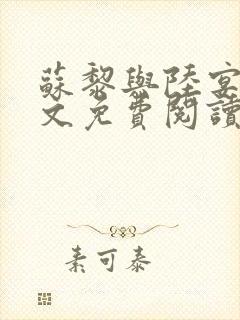 蘇黎與陸宴
文免費閱讀
素可泰